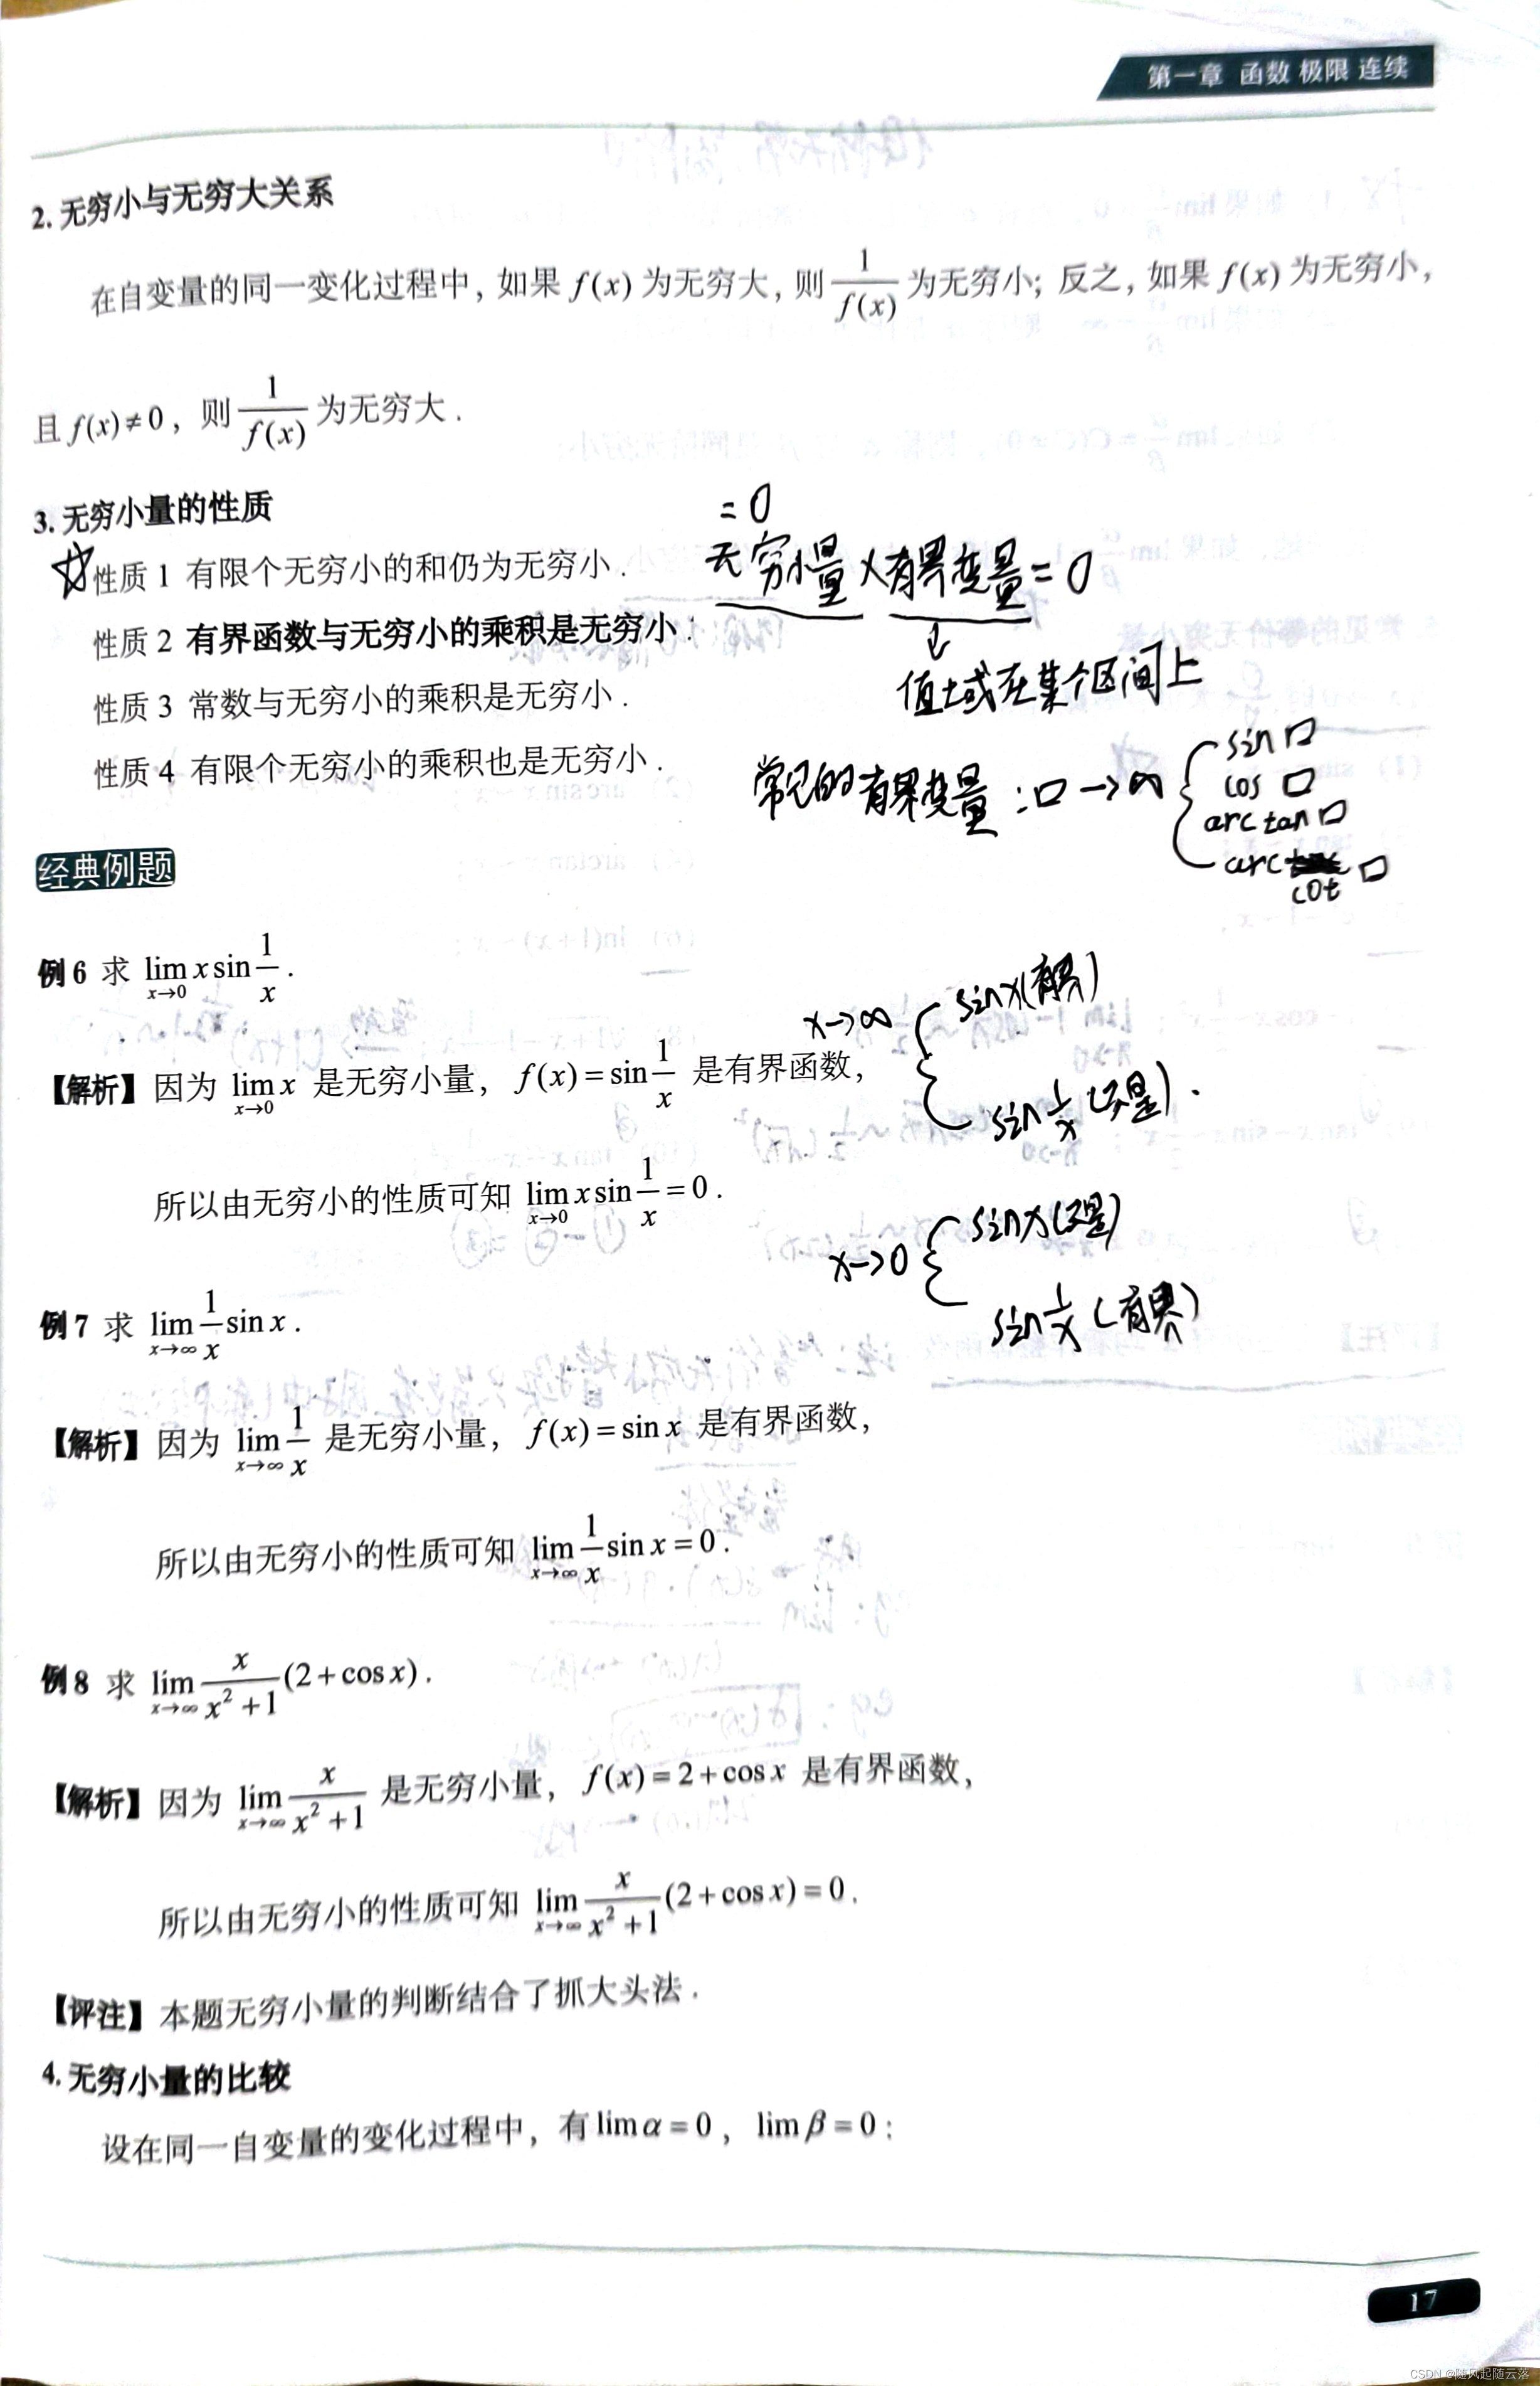 第一章 函数 极限 连续
2. 无穷小与无穷大关系
在自变量的同一变化过程中, 如果 f(x) 为无穷大, 则 1/f(x) 为无穷小; 反之, 如果 f(x) 为无穷小,
且 f(x)≠0, 则 1/f(x) 为无穷大.
3. 无穷小量的性质
☆性质 1 有限个无穷小的和仍为无穷小.
性质 2 有界函数与无穷小的乘积是无穷小.
性质 3 常数与无穷小的乘积是无穷小.
性质 4 有限个无穷小的乘积也是无穷小.
=0
无穷小量×有界变量=0
↓
值域在某个区间上
常见的有界变量:□→∞
sin□
cos□
arctan□
arc cot□
经典例题
例6 求 lim x→0 x sin 1/x.
【解析】因为 lim x→0 x 是无穷小量, f(x)=sin 1/x 是有界函数,
所以由无穷小的性质可知 lim x→0 x sin 1/x=0.
x→∞
sinx(有界)
sin 1/x (不是).
x→0
sinx(不是)
sin 1/x (有界)
例7 求 lim x→∞ 1/x sin x.
【解析】因为 lim x→∞ 1/x 是无穷小量, f(x)=sin x 是有界函数,
所以由无穷小的性质可知 lim x→∞ 1/x sin x=0.
例8 求 lim x→∞ x/(x²+1) (2+cos x).
【解析】因为 lim x→∞ x/(x²+1) 是无穷小量, f(x)=2+cos x 是有界函数,
所以由无穷小的性质可知 lim x→∞ x/(x²+1) (2+cos x)=0.
【评注】本题无穷小量的判断结合了抓大头法.
4. 无穷小量的比较
设在同一自变量的变化过程中, 有 lim α=0, lim β=0:
17
CSDN @随风起随云落